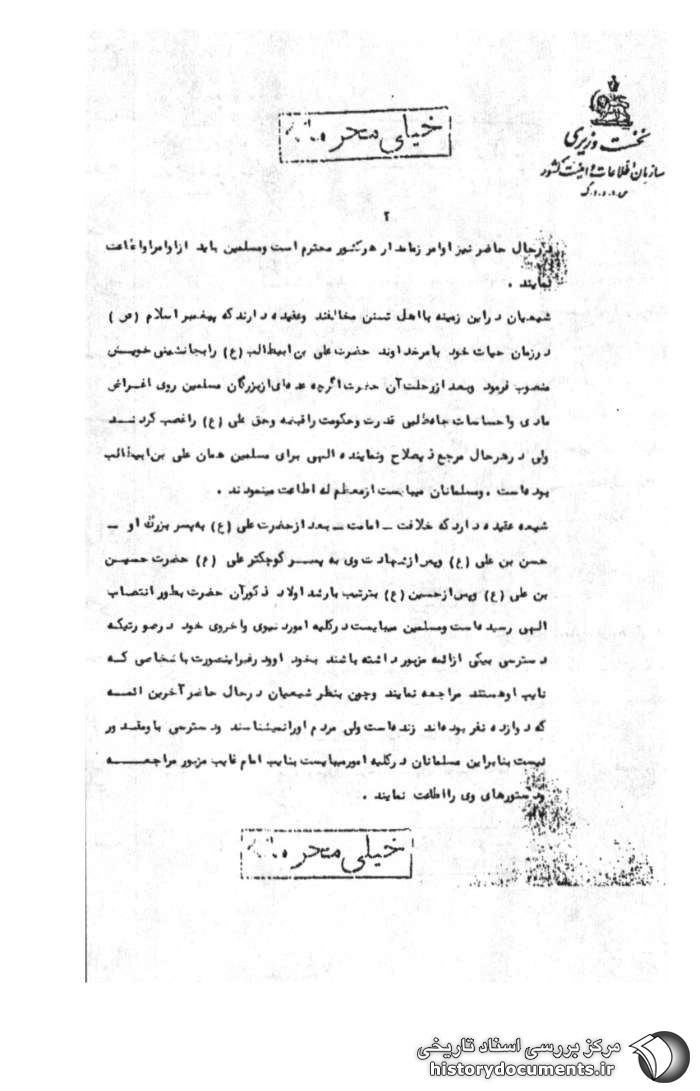 نخست وزیری
سازمان اطلاعات و امنیت کشور
س.ا.و.ا.ک
خیلی محرمانه
۲
درحال حاضر نیز اوامر زمامدار هرکشور محترم است ومسلمین باید ازاوامراواطاعت
نمایند .
شیعیان دراین زمینه بااهل تسنن مخالفند وعقیده دارندکه پیغمبر اسلام (ص)
درزمان حیات خود بامرخداوند حضرت علی بن ابیطالب (ع) رابجانشینی خویش
منصوب فرمود وبعد ازرحلت آن حضرت اگرچه عده‌ای ازبزرگان مسلمین روی اغراض
مادی واحساسات جاه‌طلبی قدرت وحکومت راقبضه وحق علی (ع) راغصب کردند
ولی درهرحال مرجع ذیصلاح ونماینده الهی برای مسلمین همان علی بن ابیطالب
بوده‌است . ومسلمانان میبایست ازمعظم له اطاعت مینمودند .
شیعه عقیده داردکه خلافت ــ امامت ــ بعد ازحضرت علی (ع) به‌پسر بزرگ او ــ
حسن بن علی (ع) وپس ازشهادت وی به پسر کوچکتر علی (ع) حضرت حسین
بن علی (ع) وپس ازحسین (ع) بترتیب بارشد اولاد ذکورآن حضرت بطور انتصاب
الهی رسیده‌است ومسلمین میبایست درکلیه امور دنیوی واخروی خود درصورتیکه
دسترسی بیکی ازائمه مزبور داشته باشند بخود اوودرغیراینصورت باشخاصی که
نایب اوهستند مراجعه نمایند وچون بنظر شیعیان درحال حاضر آخرین ائمه
که دوازده نفر بوده‌اند زنده‌است ولی مردم اورانمیشناسند ودسترسی باومقدور
نیست بنابراین مسلمانان درکلیه امورمیبایست بنایب امام غایب مزبور مراجعه
ودستورهای وی رااطاعت نمایند .
خیلی محرمانه
مرکز بررسی اسناد تاریخی
historydocuments.ir